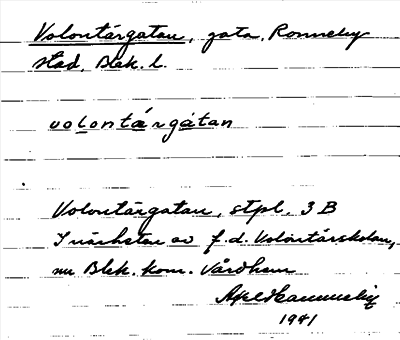 Volontärgatan, gata, Ronneby
stad, Blek. l.
volontárgàtan
Volontärgatan, stpl. 3 B
I närheten av f.d. Volontärskolan,
nu Blek. kom. Vårdhem
Axel
1941